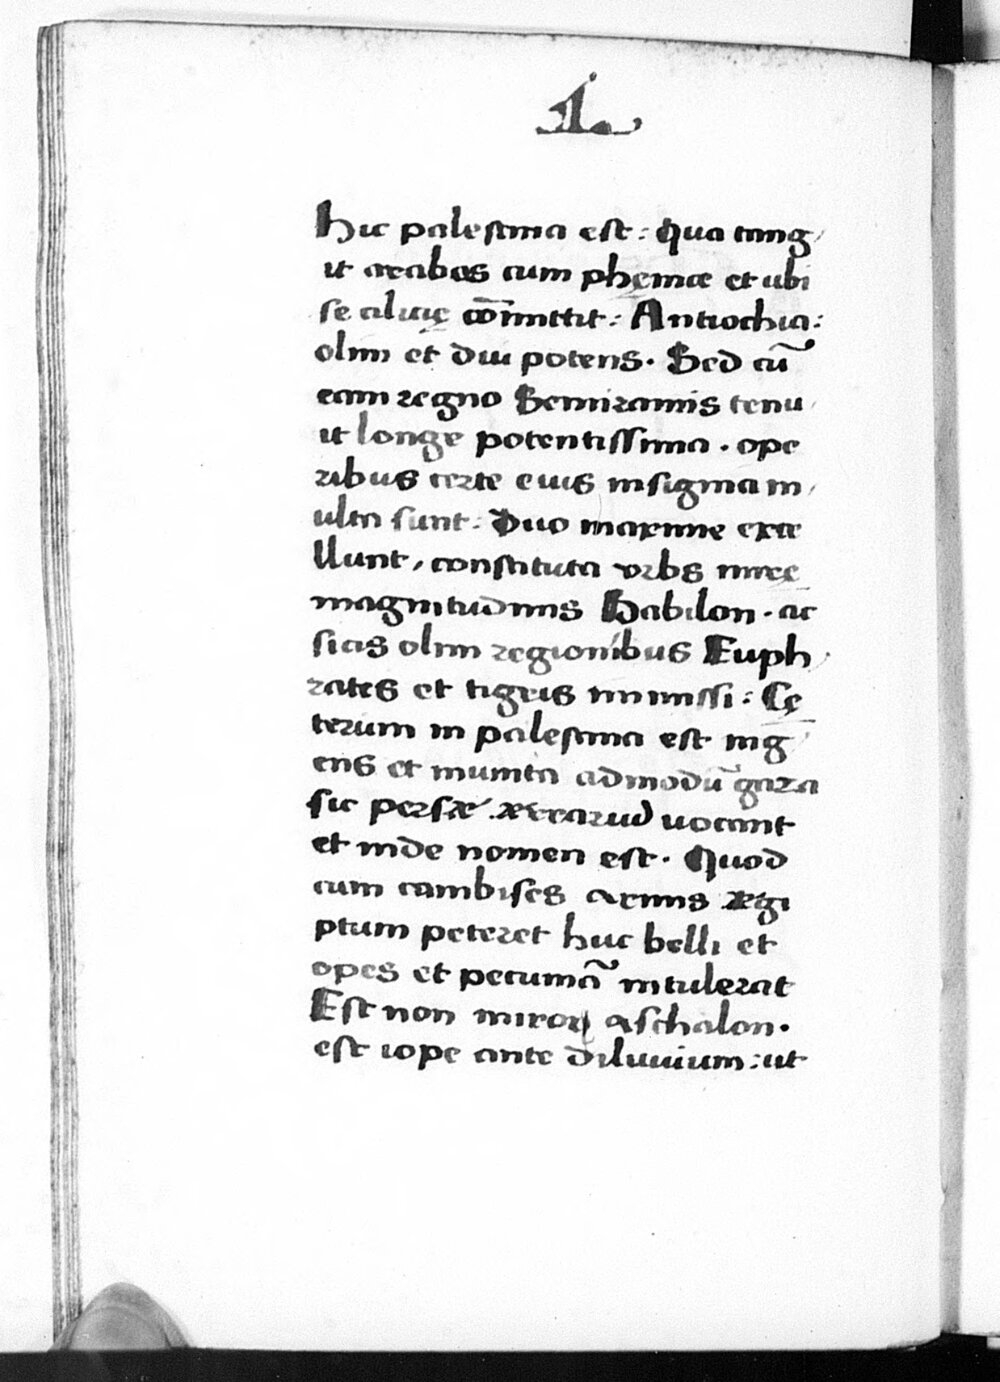 1.
Hic palestina est: Qua tang
it arabas cum phęnice et ubi
se cilicię cōmittit: Antiochia:
olim et diu potens. Sed cū
eam regno Semiramis tenu
it longe potentissima. ope
ribus certe eius insignia m
ulta sunt: Duo maxime exce
llunt, constituta vrbs mirę
magnitudinis Babilon. ac
sicis olim regionibus Euph
rates et tigris immissi: Cę
terum in palestina est ing
ens et munita admodū gaza
sic persæ ærrarium vocant
et inde nomen est. Quod
cum cambises armis ægi
ptum peteret huc belli et
opes et pecuniā intulerat
Est non miror aschalon.
est iope ante diluuium: ut